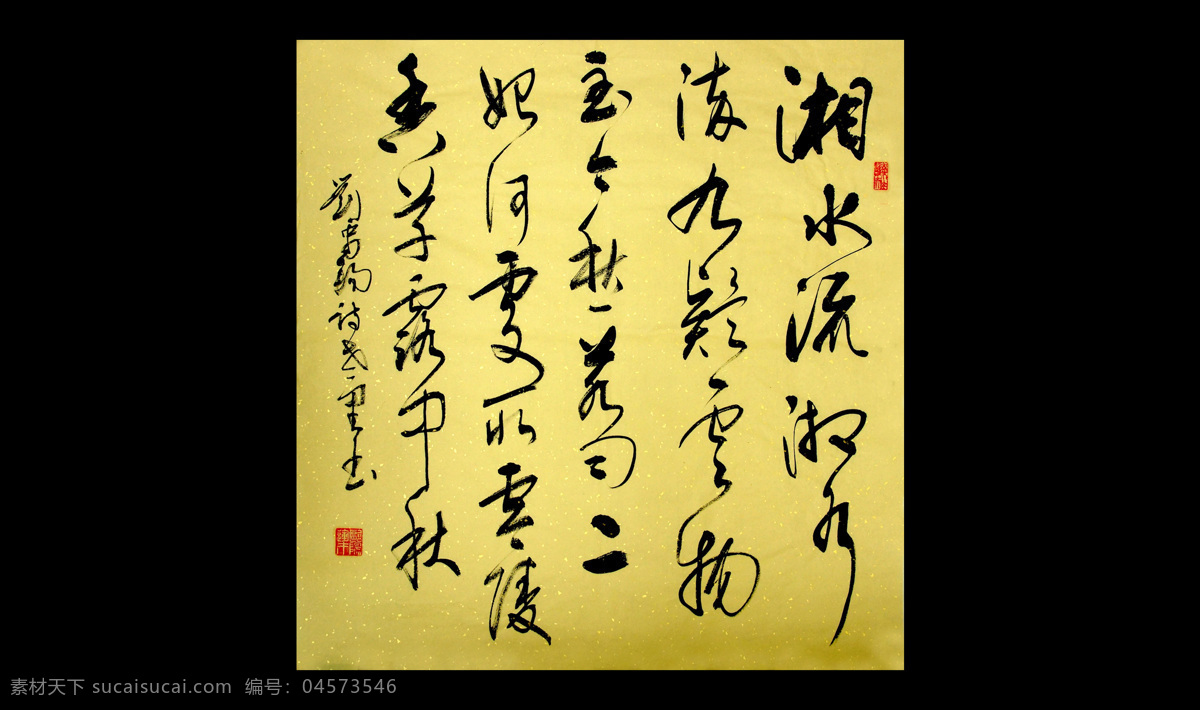 湘水流湘水
流九疑雲物
至今愁若问二
妃何處所零陵
香草露中秋
劉禹錫詩 书
素材天下 sucaisucai.com 编号：04573546